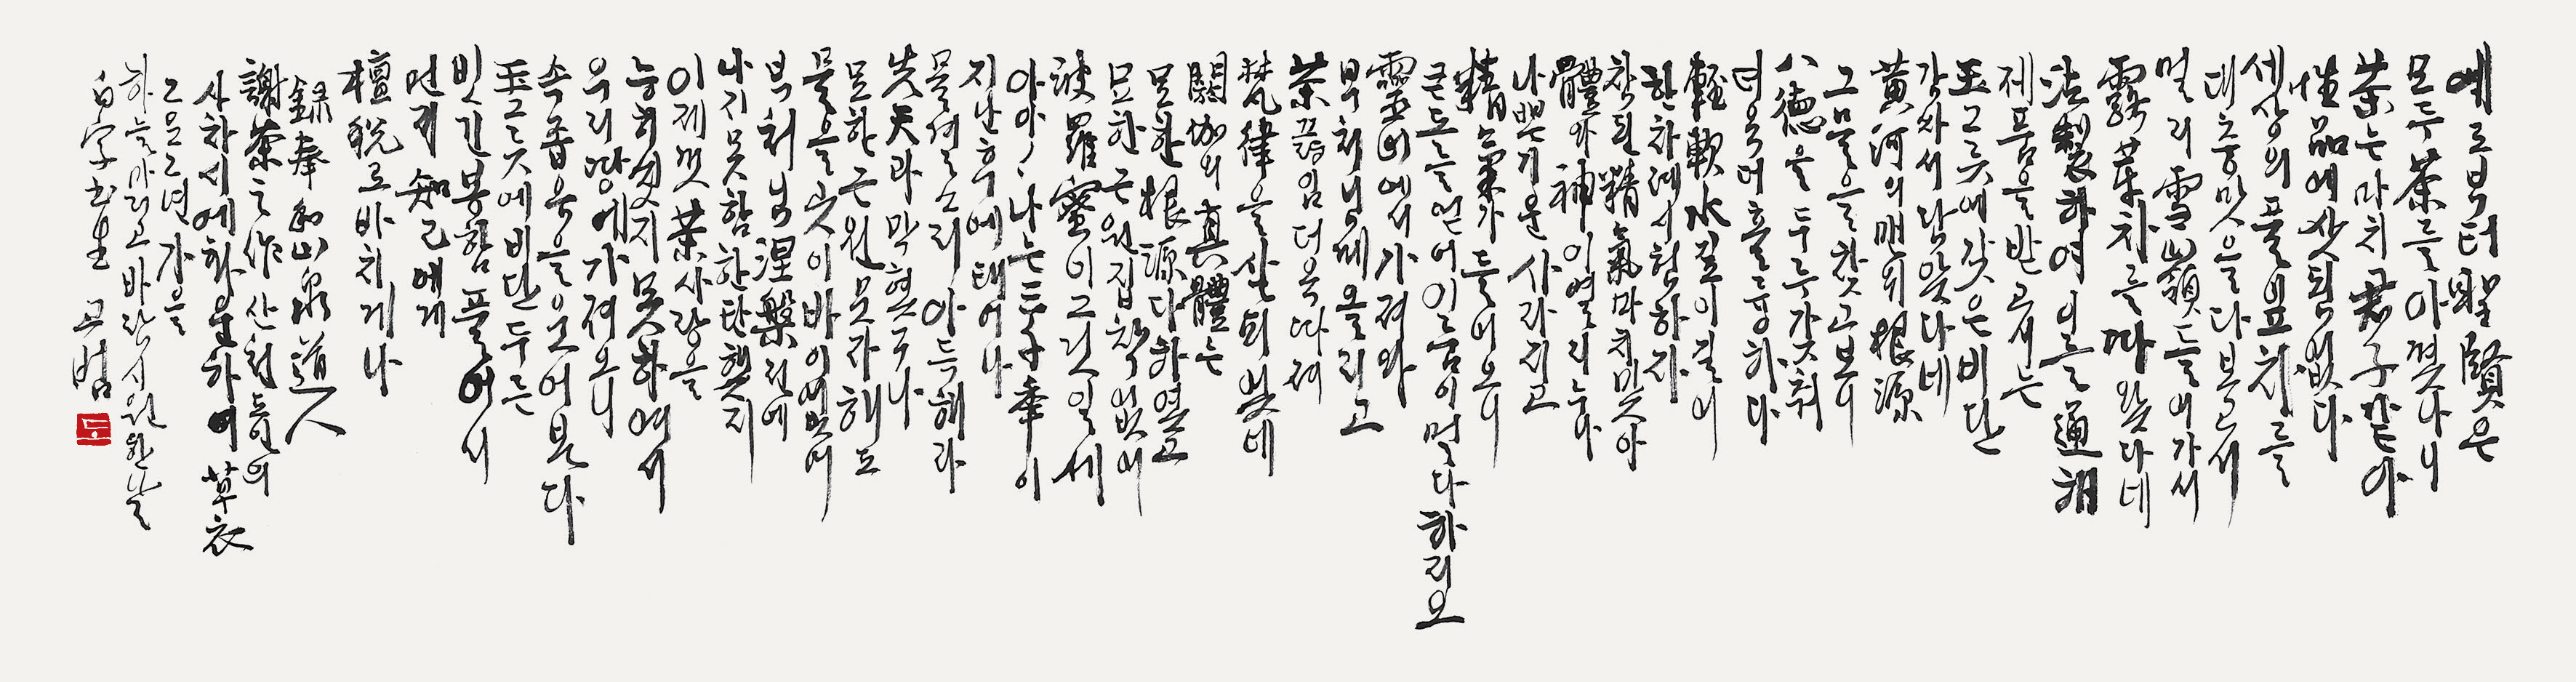 예로부터 聖賢은
모두 茶를 아꼈나니
茶는 마치 君子 같아
性品에 삿됨 없다
세상의 풀잎 차를
대충 맛을 다 보고서
멀리 雪山嶺 들어가서
露芽차를 따 왔다네
法製하여 이를 通해
제품을 받고서는
玉그릇에 갖은 비단
감싸서 담았다네
黃河의 맨 위 根源
그 물을 찾고 보니
八德을 두루 갖춰
더욱 더 훌륭하다
輕軟水 깊이 길어
한차례 시험하자
참된 精氣 마치 맞아
體와 神이 열리누나
나쁜 기운 사라지고
精氣가 들어오니
큰 도를 얻어 이룸이 멀다 하리오
靈山에서 가져와
부처님께 올리고
茶 끓임 더욱 따져
梵律을 살펴 있네
閼伽의 眞體는
묘한 根源 다하였고
묘한 근원 집착 없어
波羅蜜이 그것일세
아아, 나는 三千年이
지난 후에 태어나
물결소리 아득해라
先天과 막혔구나
묘한 근원 묻자해도
물을 곳이 바이 없어
부처님 涅槃전에
나지 못함 한탄했지
이제껏 茶 사랑을
능히 씻지 못하여서
우리 땅에 가져오니
속 좁음을 웃어본다
玉그릇에 비단 두른
빗긴 봉함 풀어서
먼저 知己에게
檀稅로 바치게나
錄奉和山泉道人
謝茶之作 산천도인의
사차시에 화운하여 草衣
그모그년 가을
하늘 마리고 바람 시원한 날
白字書生 근범